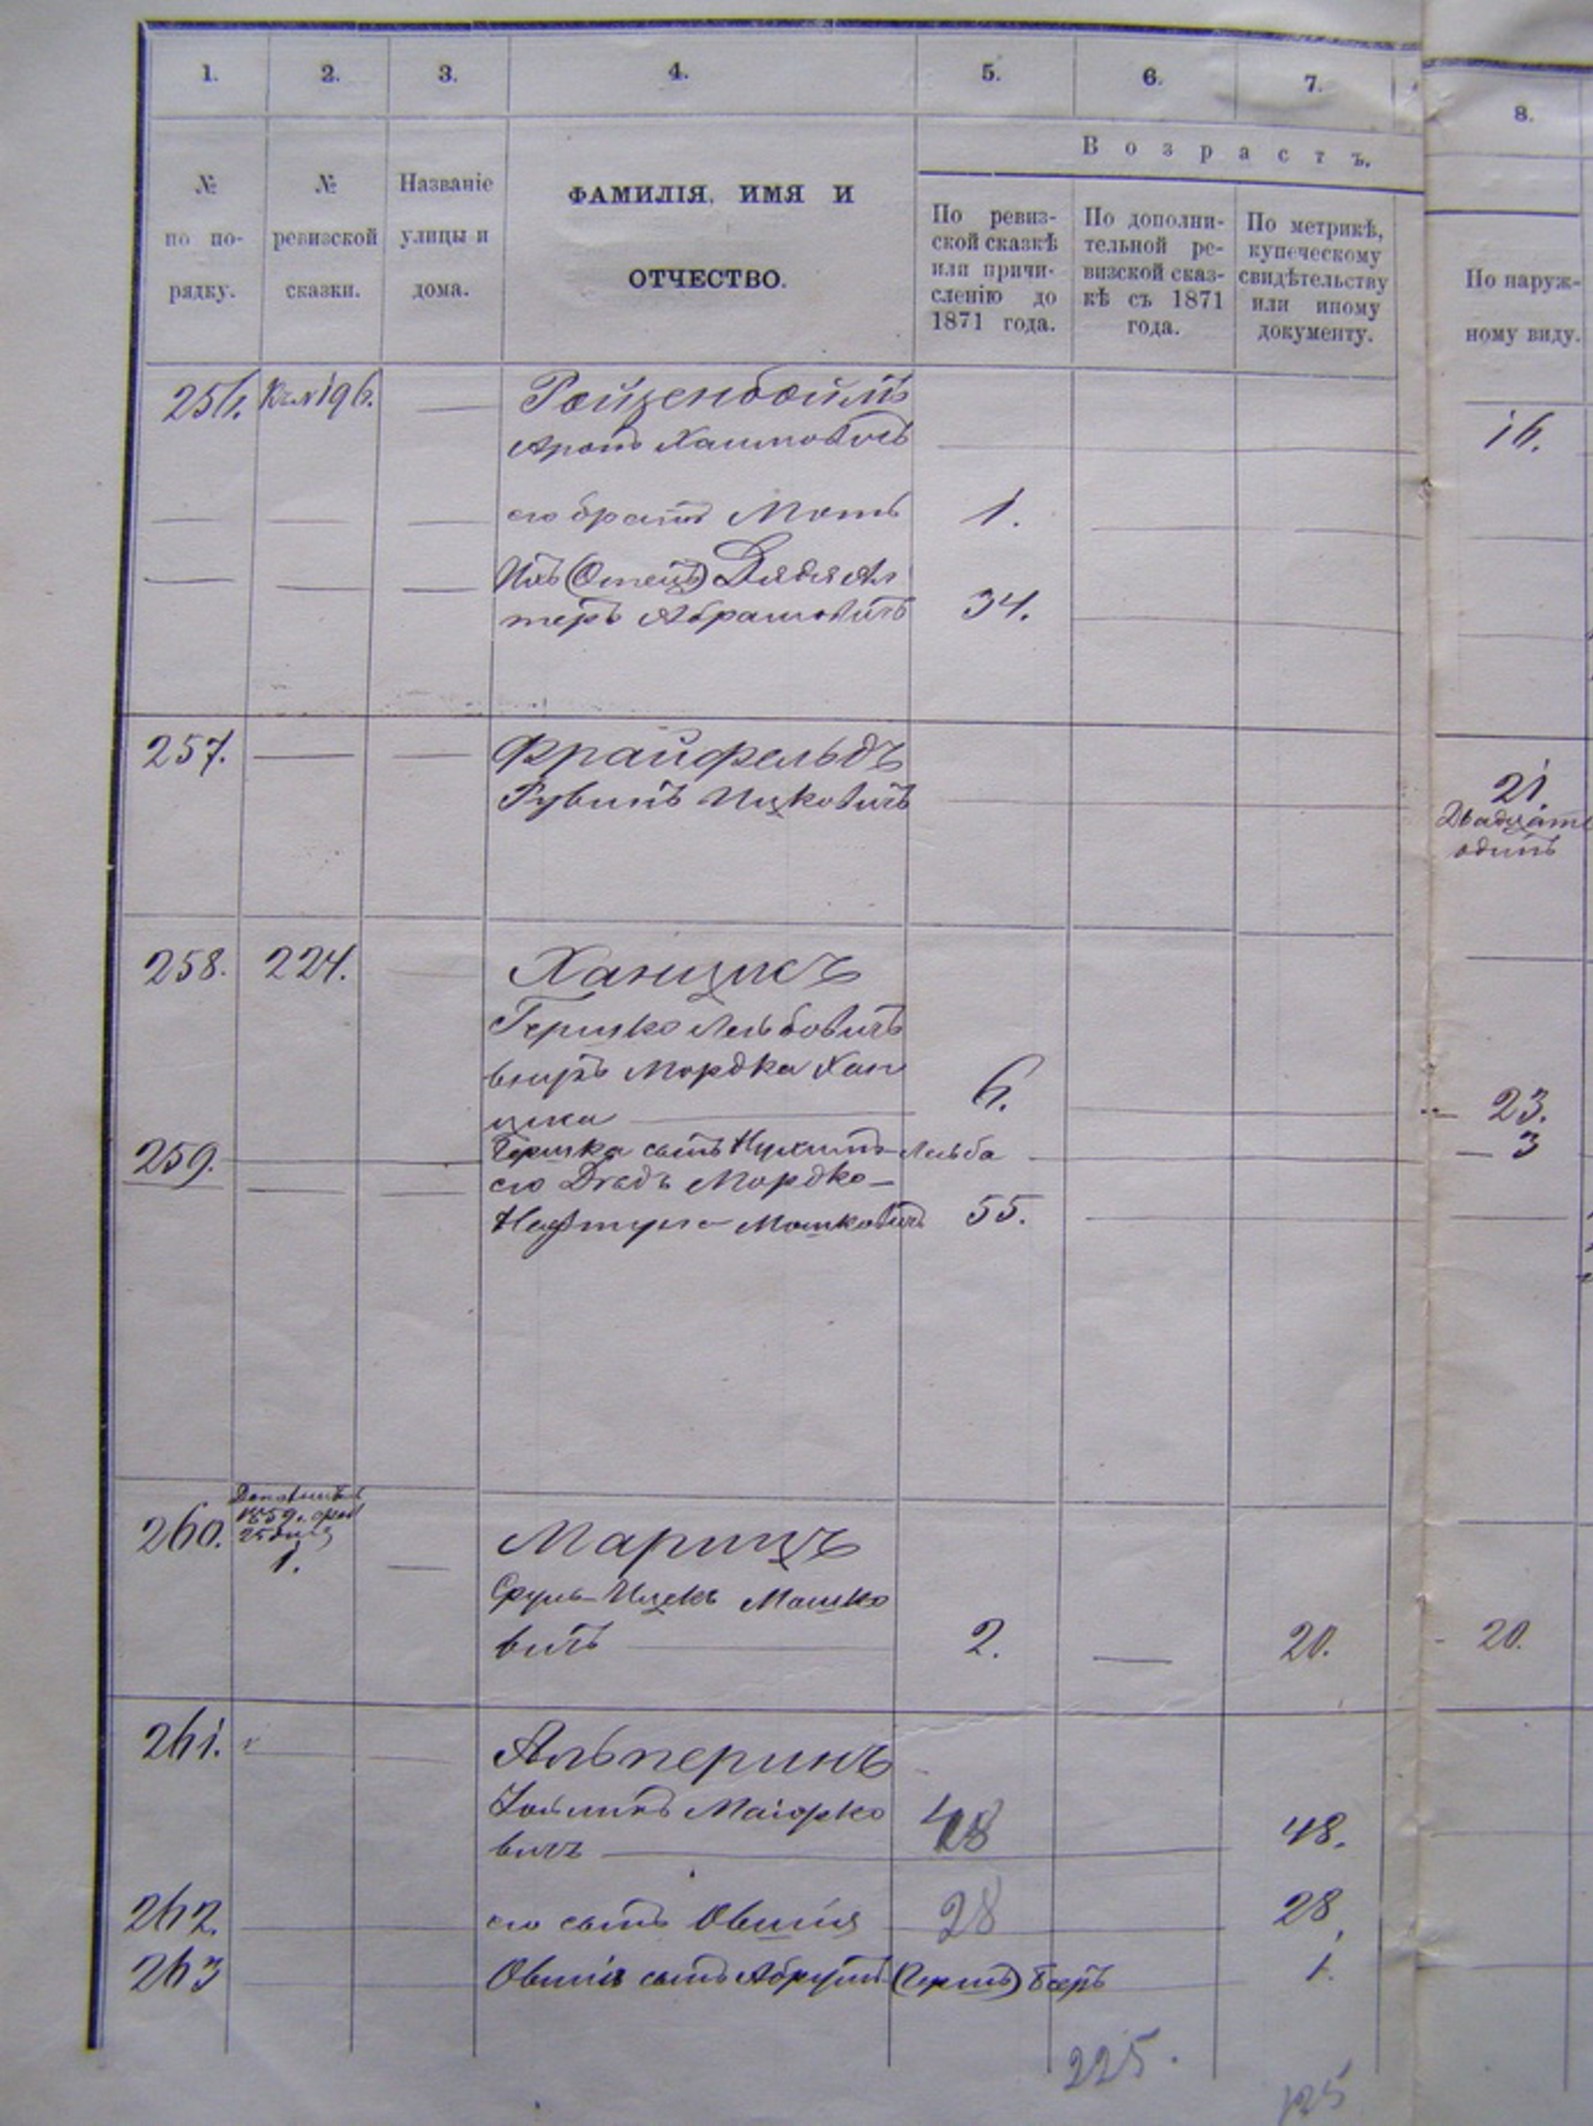 1. 2. 3. 4. 5. 6. 7. 8.
Возрастъ.
№ по порядку.
№ ревизской сказки.
Названіе улицы и дома.
ФАМИЛІЯ, ИМЯ И
ОТЧЕСТВО.
По ревиз-
ской сказкѣ
или причи-
сленію до
1871 года.
По дополни-
тельной ре-
визской сказ-
кѣ съ 1871
года.
По метрикѣ,
купеческому
свидѣтельству
или иному
документу.
По наруж-
ному виду.
256. 196. Ройзенбоймъ
Аронъ Хаимовичъ 16.
его братъ Мота 1.
Ихъ (Отецъ) Дядя Ал
теръ Абрамовичъ 34.
257. Фрайфельдъ
Рувинъ Ицковичъ 21.
Двадцать
одинъ
258. 224. Ханцисъ
Гершко Лейбовичъ
внукъ Мордка Хан
циса 6. 23.
259. Гершка сынъ Нухимъ-Лейба 3
его Дядя Мордко-
Нафтула Мошковичъ 55.
260. 1859 г.
1.
Марицъ
Сруль-Ицекъ Мошко
вичъ 2. 20. 20.
261. Альперинъ
Маіорко
вичъ 48 48.
262. его сынъ Овшія 28 28
263 Овшія сынъ Абрумъ (Гершъ) Беръ 1.
225.
125